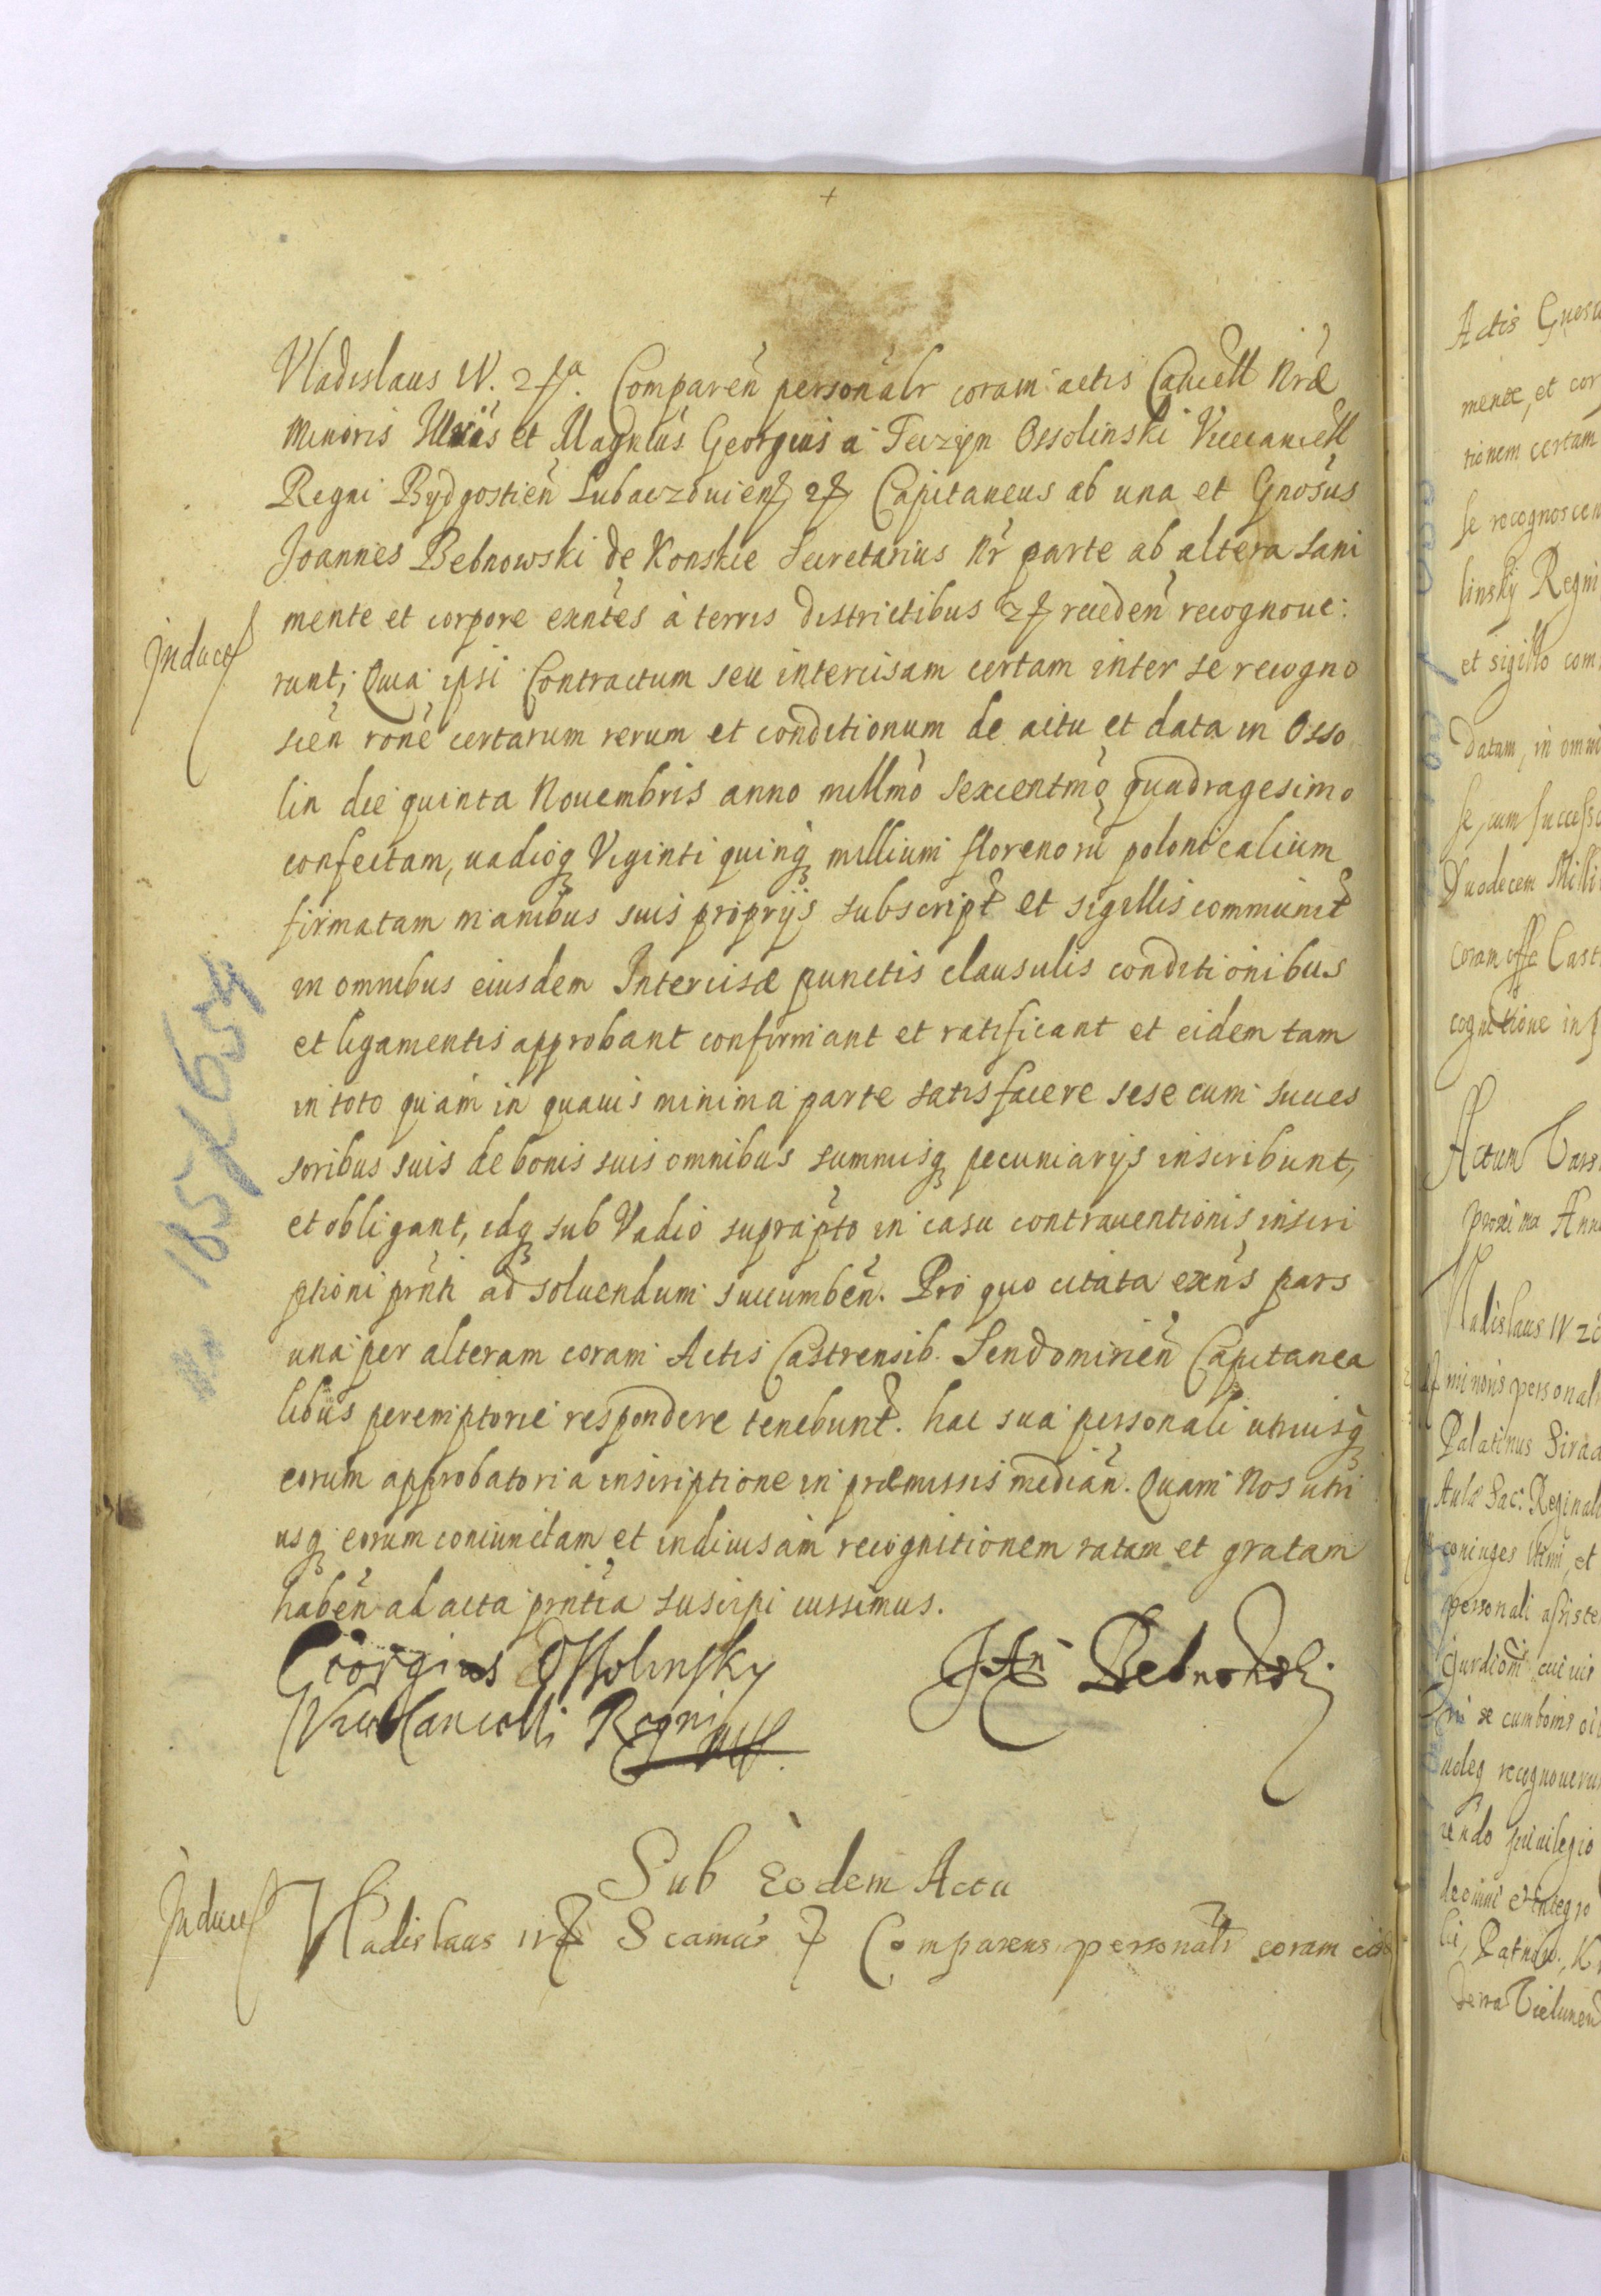 Vladislaus IV. etc. Comparen̄ personalr coram actis Cancell Nrae
Minoris Illris et Magncus Georgius a Teczyn Ossolinski Vicecancell
Regni Bydgostien̄ Lubaczouien etc Capitaneus ab una et Gnosus
Joannes Bebnowski de Konskie Secretarius Nr parte ab altera sani
mente et corpore exntes à terris districtibus etc receden̄ recognoue:
Inducet
runt; Quia ipsi Contractum seu intercisam certam inter se recogno
scen̄ rone certarum rerum et conditionum de actu et data in Osso
lin die quinta Nouembris anno millmo sexcentmo quadragesimo
confectam, uadioq Viginti quinq millium florenorū polonicalium
firmatam manibus suis proprijs subscript et sigillis communit
in omnibus eiusdem Intercisae punctis clausulis conditionibus
et ligamentis approbant confirmant et ratificant et eidem tam
in toto quàm in quauis minima parte satisfacere sese cum succes
soribus suis de bonis suis omnibus summisq pecuniarijs inscribunt,
et obligant, idq sub Vadio suprapto in casu contrauentionis inscri
ptioni prnti ad soluendum succumben̄. Pro quo citata exns pars
una per alteram coram Actis Castrensib. Sendomirien̄ Capitanea
libus peremptorie respondere tenebunt. hac sua personali utriusq
eorum approbatoria inscriptione in praemissis median̄. Quam Nos utri
usq eorum coniunctam et indiuisam recognitionem ratam et gratam
haben̄ ad acta prntia suscipi iussimus.
Georgius Ossolinsky
Vice Cancelli Regni mp.
Jan Bebnowski
185/1659
Sub Eodem Actu
Inducet
Vladislaus IV etc Scamus etc Comparens personalr coram
Actis
menae, et cor
tionem certam
se recognoscen
linskÿ Regni
et sigillo com
datam, in omni
se, cum successo
Duodecem Milli
coram offo Cast
cognitione in
Actum Vars
proxima Ann
Vladislaus IV
minoris personal
Palatinus Sirad
Aulae Sac: Reginal
coniuges
personali assiste
se cum bonis
recognouerun
priuilegio